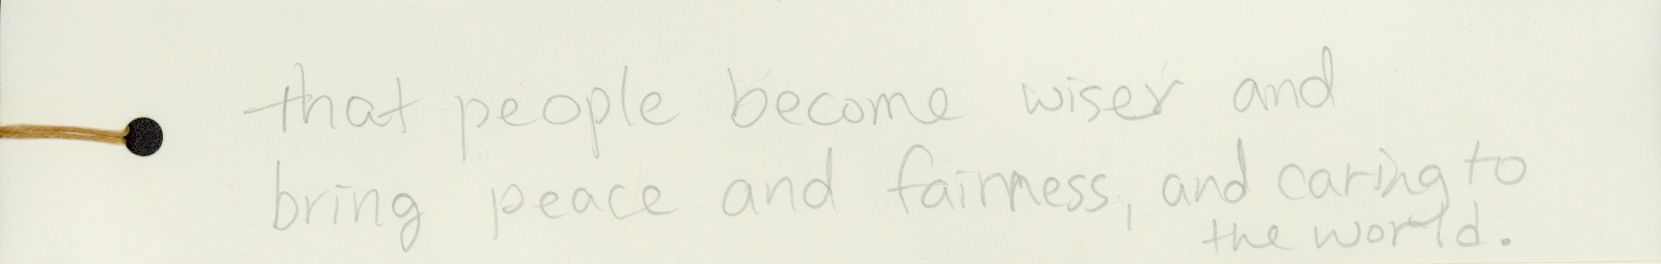 that people become wiser and
bring peace and fairness, and caring to
the world.